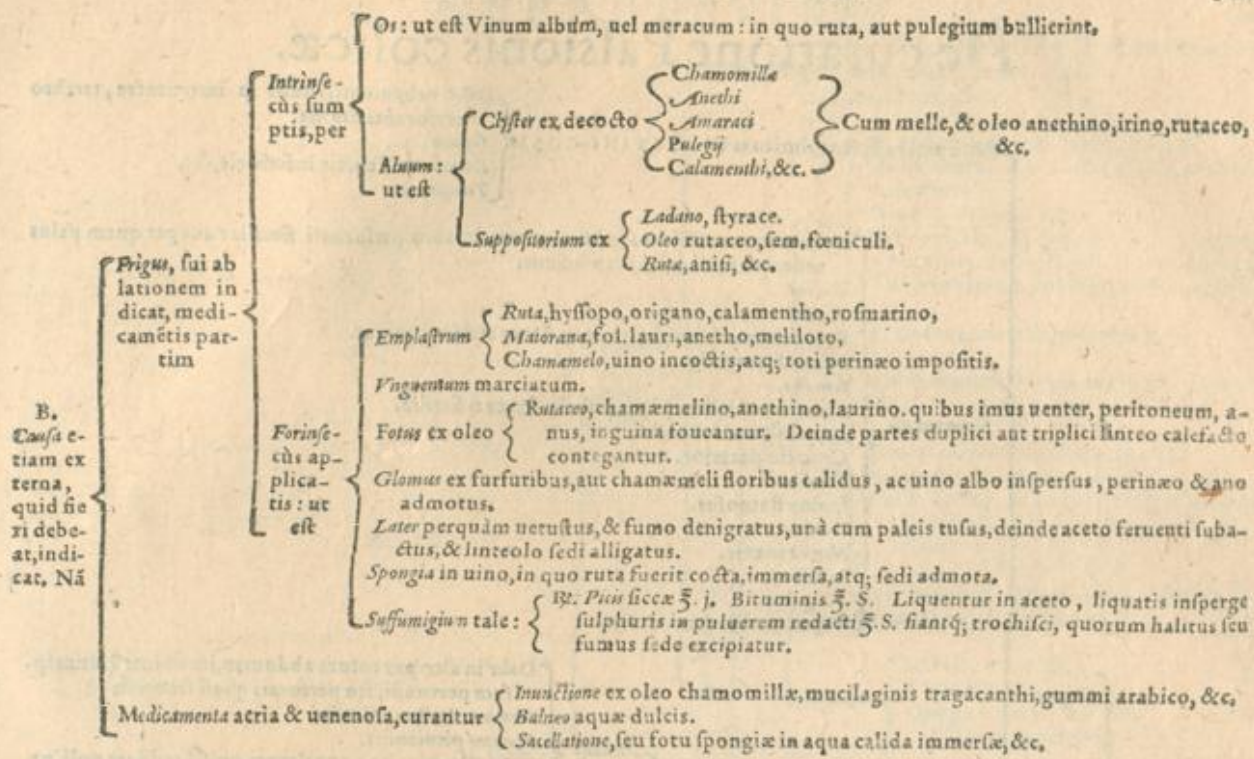 Os: ut eſt Vinum album, uel meracum: in quo ruta, aut pulegium bullierint.
Intrinſe-
cùs ſum
ptis, per
Aluum:
ut eſt
Clyſter ex decocto
Chamomillæ
Anethi
Amaraci
Pulegij
Calamenthi, &c.
Cum melle, & oleo anethino, irino, rutaceo,
&c.
Suppoſitorium ex
Ladano, ſtyrace.
Oleo rutaceo, ſem. fœniculi.
Rutæ, aniſi, &c.
Frigus, ſui ab
lationem in
dicat, medi-
camētis par-
tim
B.
Cauſa e-
tiam ex
terna,
quid fie
ri debe-
at, indi-
cat. Nā
Forinſe-
cùs ap-
plica-
tis: ut
eſt
Emplaſtrum
Ruta, hyſſopo, origano, calamentho, roſmarino,
Maiorana, fol. lauri, anetho, meliloto,
Chamæmelo, uino incoctis, atq; toti perinæo impoſitis.
Vnguentum marciatum.
Fotus ex oleo
Rutaceo, chamæmelino, anethino, laurino. quibus imus uenter, peritoneum, a-
nus, inguina foueantur. Deinde partes duplici aut triplici linteo calefacto
contegantur.
Glomus ex furfuribus, aut chamæmeli floribus calidus, ac uino albo inſperſus, perinæo & ano
admotus.
Later perquàm uetuſtus, & fumo denigratus, unà cum paleis tuſus, deinde aceto feruenti ſuba-
ctus, & linteolo ſedi alligatus.
Spongia in uino, in quo ruta fuerit cocta, immerſa, atq; ſedi admota.
Suffumigium tale:
℞. Picis ſiccæ ℥. j. Bituminis ℥. S. Liquentur in aceto, liquatis inſperge
ſulphuris in puluerem redacti ℥. S. fiantq; trochiſci, quorum halitus ſeu
fumus ſede excipiatur.
Medicamenta acria & uenenoſa, curantur
Inunctione ex oleo chamomillæ, mucilaginis tragacanthi, gummi arabico, &c.
Balneo aquæ dulcis.
Sacellatione, ſeu fotu ſpongiæ in aqua calida immerſæ, &c.